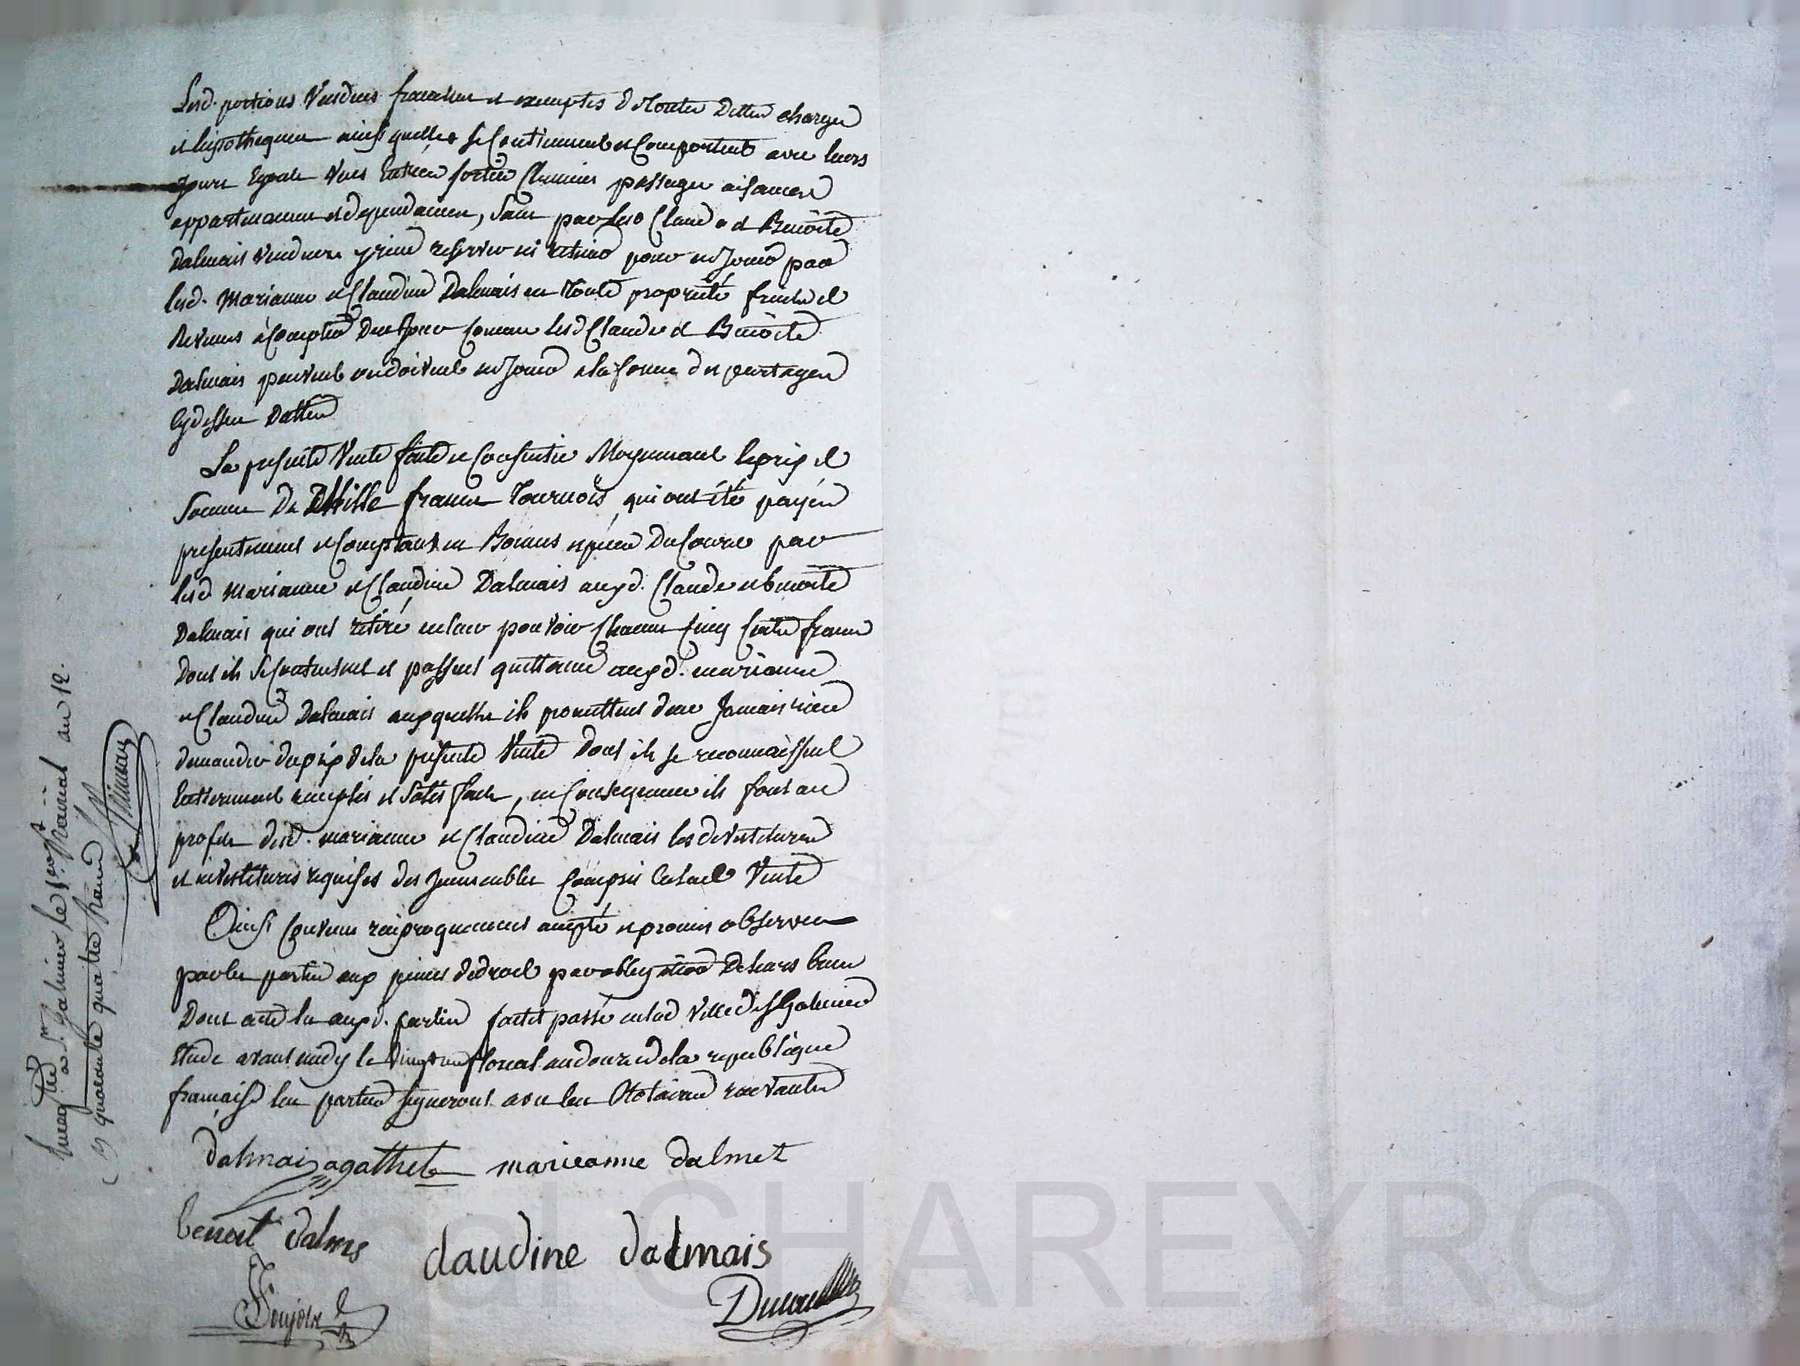 Lesd. portions Vendues franches et exemptes de toutes Dettes charges
et hipothéques ainsi quelles se Contiennent et Comportent avec leurs
jours Egouts Vues Entrées sorties Chemins passages aisances
appartenances et dependances, Sans par lesd Claude et Benoite
Dalmais Vendeurs y rien reserver ni retenir pour en Jouir par
lesd. Marianne et Claudine Dalmais en toute propriété fruits et
Revenus a Compter De ce Jour Comme lesd Claude et Benoite
Dalmais peuvent ou doivent en Jouir a la forme des partages
Cydessus Dattes
La presente Vente faite et Consentie Moyennant le prix et
Somme De Mille francs Tournois qui ont été payés
presentement et Comptant en Bonnes espèces Du Cours par
lesd Marianne et Claudine Dalmais auxd. Claude et benoite
Dalmais qui ont retiré en leur pouvoir Chacun Cinq Cents francs
Dont ils se Contentent et passent quittance auxd. marianne
et Claudine Dalmais auxquelles ils promettent de ne Jamais rien
demander du prix de la presente Vente Dont ils se reconnaissent
Entierement remplis et Satisfaits, en Consequence ils font au
profit desd. marianne et Claudine Dalmais les devestitures
et investitures requises des Immeubles Compris en lad Vente
Ainsi Convenu reciproquement accepté et promis observer
par les parties aux peines de droit par obligation De leurs biens
Dont acte lu auxd. parties fait et passé en lad Ville de St Galmier
Etude avant midy le Vingt un floreal an douze de la republique
française les parties signeront avec les Notaires recevants
dalmais agathe marieanne dalmet
benoit dalmes
claudine dalmais
Enregtré a St. Galmier le 1er. prairial an 12.
quarante quatre francs